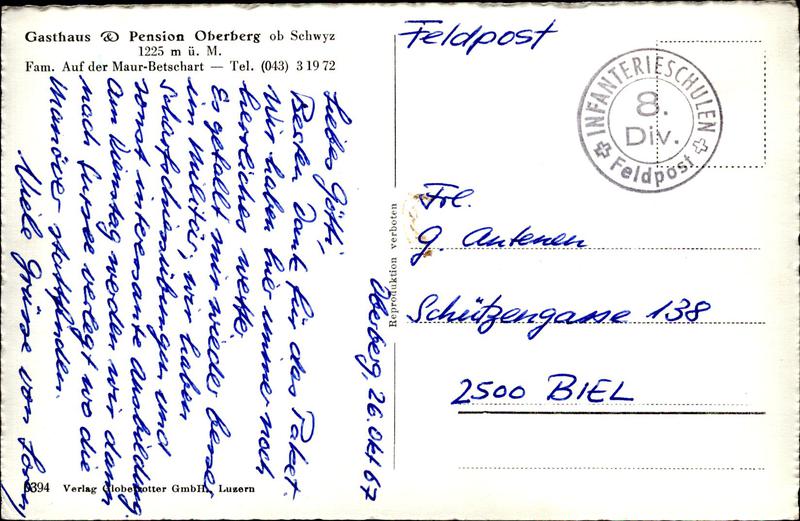 Gasthaus & Pension Oberberg ob Schwyz
1225 m ü. M.
Fam. Auf der Maur-Betschart — Tel. (043) 3 19 72
Feldpost
INFANTERIESCHULEN
8.
Div.
Feldpost
Oberberg, 26. Okt 67
Liebes Götti,
Besten Dank für das Paket.
Wir haben hier immer noch
herrliches Wetter.
Es gefällt mir wieder besser
im Militär, wir haben
Scharfschiessübungen und
sonst interessante Ausbildung.
Am Dienstag werden wir dann
nach Sursee verlegt wo die
Manöver stattfinden.
Viele Grüsse von
Frl.
G. Antenen
Schützengasse 138
2500 BIEL
Reproduktion verboten
6394 Verlag Globetrotter GmbH., Luzern